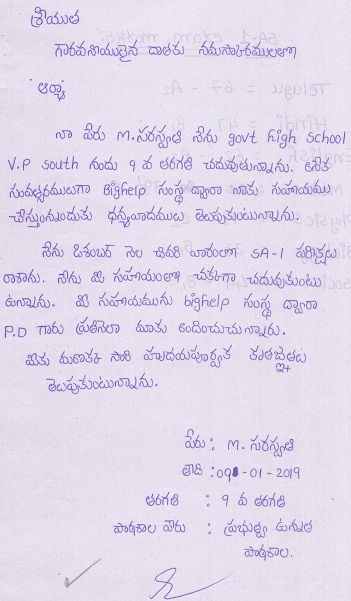 శ్రీయుత
గౌరవనీయులైన దాతకు నమస్కారములతో
ఆర్యా
నా పేరు M. సరస్వతి నేను govt high school
V.P south నందు 9 వ తరగతి చదువుతున్నాను. అనేక
సంవత్సరములుగా Bighelp సంస్థ ద్వారా నాకు సహాయము
చేస్తున్నందుకు ధన్యవాదములు తెలుపుకుంటున్నాను.
నేను డిశంబర్ నెల చివరి వారంలో SA-1 పరీక్షలు
రాశాను. నేను మీ సహాయంతో చక్కగా చదువుకుంటు
ఉన్నాను. మీ సహాయమును bighelp సంస్థ ద్వారా
P.D గారు ప్రతినెలా మాకు అందించుచున్నారు.
మీకు మరొక్క సారి హృదయపూర్వక కృతజ్ఞతలు
తెలుపుకుంటున్నాను.
పేరు : M. సరస్వతి
తేది : 09-01-2019
తరగతి : 9 వ తరగతి
పాఠశాల పేరు : ప్రభుత్వ ఉన్నత
పాఠశాల.